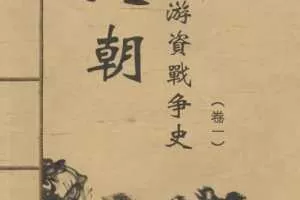 朝
游資戰争史
（卷一）